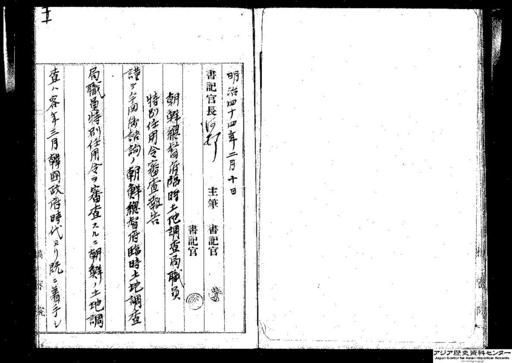 明治四十四年二月十日
書記官長 河村 主筆 書記官
書記官
朝鮮總督府臨時土地調査局職員
特別任用令審査報告
謹テ今回御諮詢ノ朝鮮總督府臨時土地調査
局職員特別任用令ヲ審査スルニ朝鮮ノ土地調
査ハ客年三月韓國政府時代ヨリ既ニ著手シ
樞密院
アジア歴史資料センター
Japan Center for Asian Historical Records